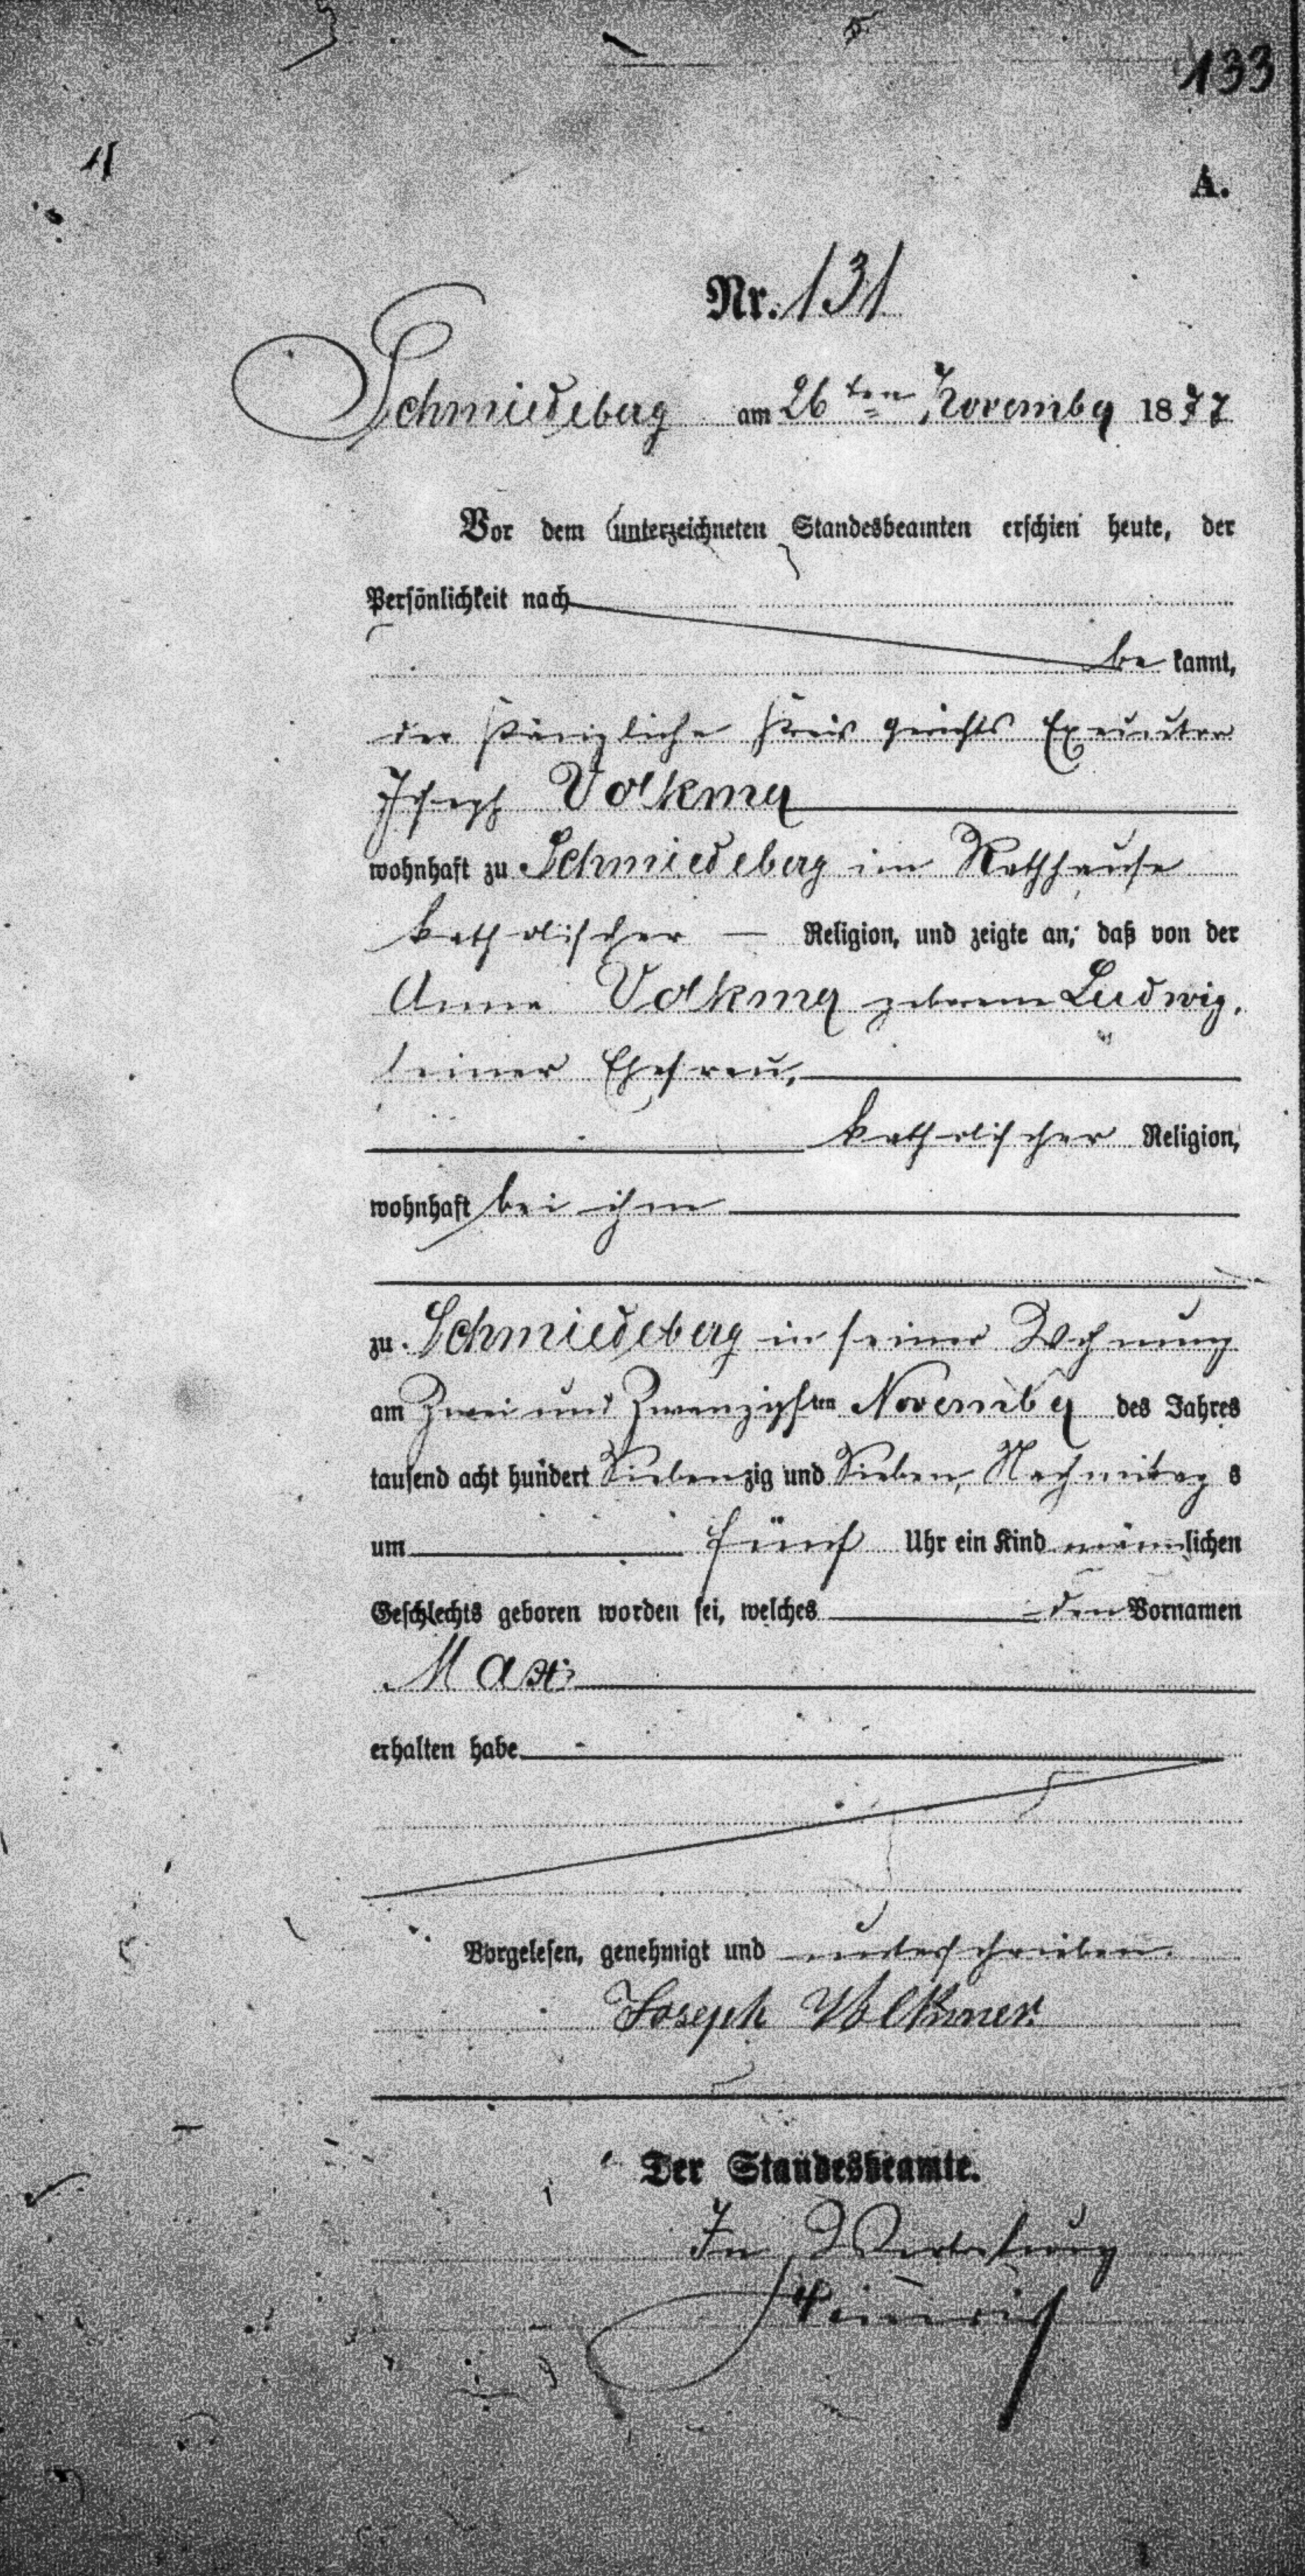 133
A.
Nr. 131
Schmiedeberg am 26ten November 1877
Vor dem unterzeichneten Standesbeamten erschien heute, der
Persönlichkeit nach
be kannt,
der Königliche Kreis gerichts Executor
Joseph Volkmer
wohnhaft zu Schmiedeberg im Rathhause
katholischer — Religion, und zeigte an, daß von der
Anna Volkmer geborene Ludwig,
seiner Ehefrau,
katholischer Religion,
wohnhaft bei ihm
zu Schmiedeberg in seiner Wohnung
am Zwei und Zwanzigsten November des Jahres
tausend acht hundert Siebenzig und Sieben, Nachmittags
um fünf Uhr ein Kind männlichen
Geschlechts geboren worden sei, welches den Vornamen
Max
erhalten habe
Vorgelesen, genehmigt und unterschrieben.
Joseph Volkmer.
Der Standesbeamte.
In Vertretung
Heinrich